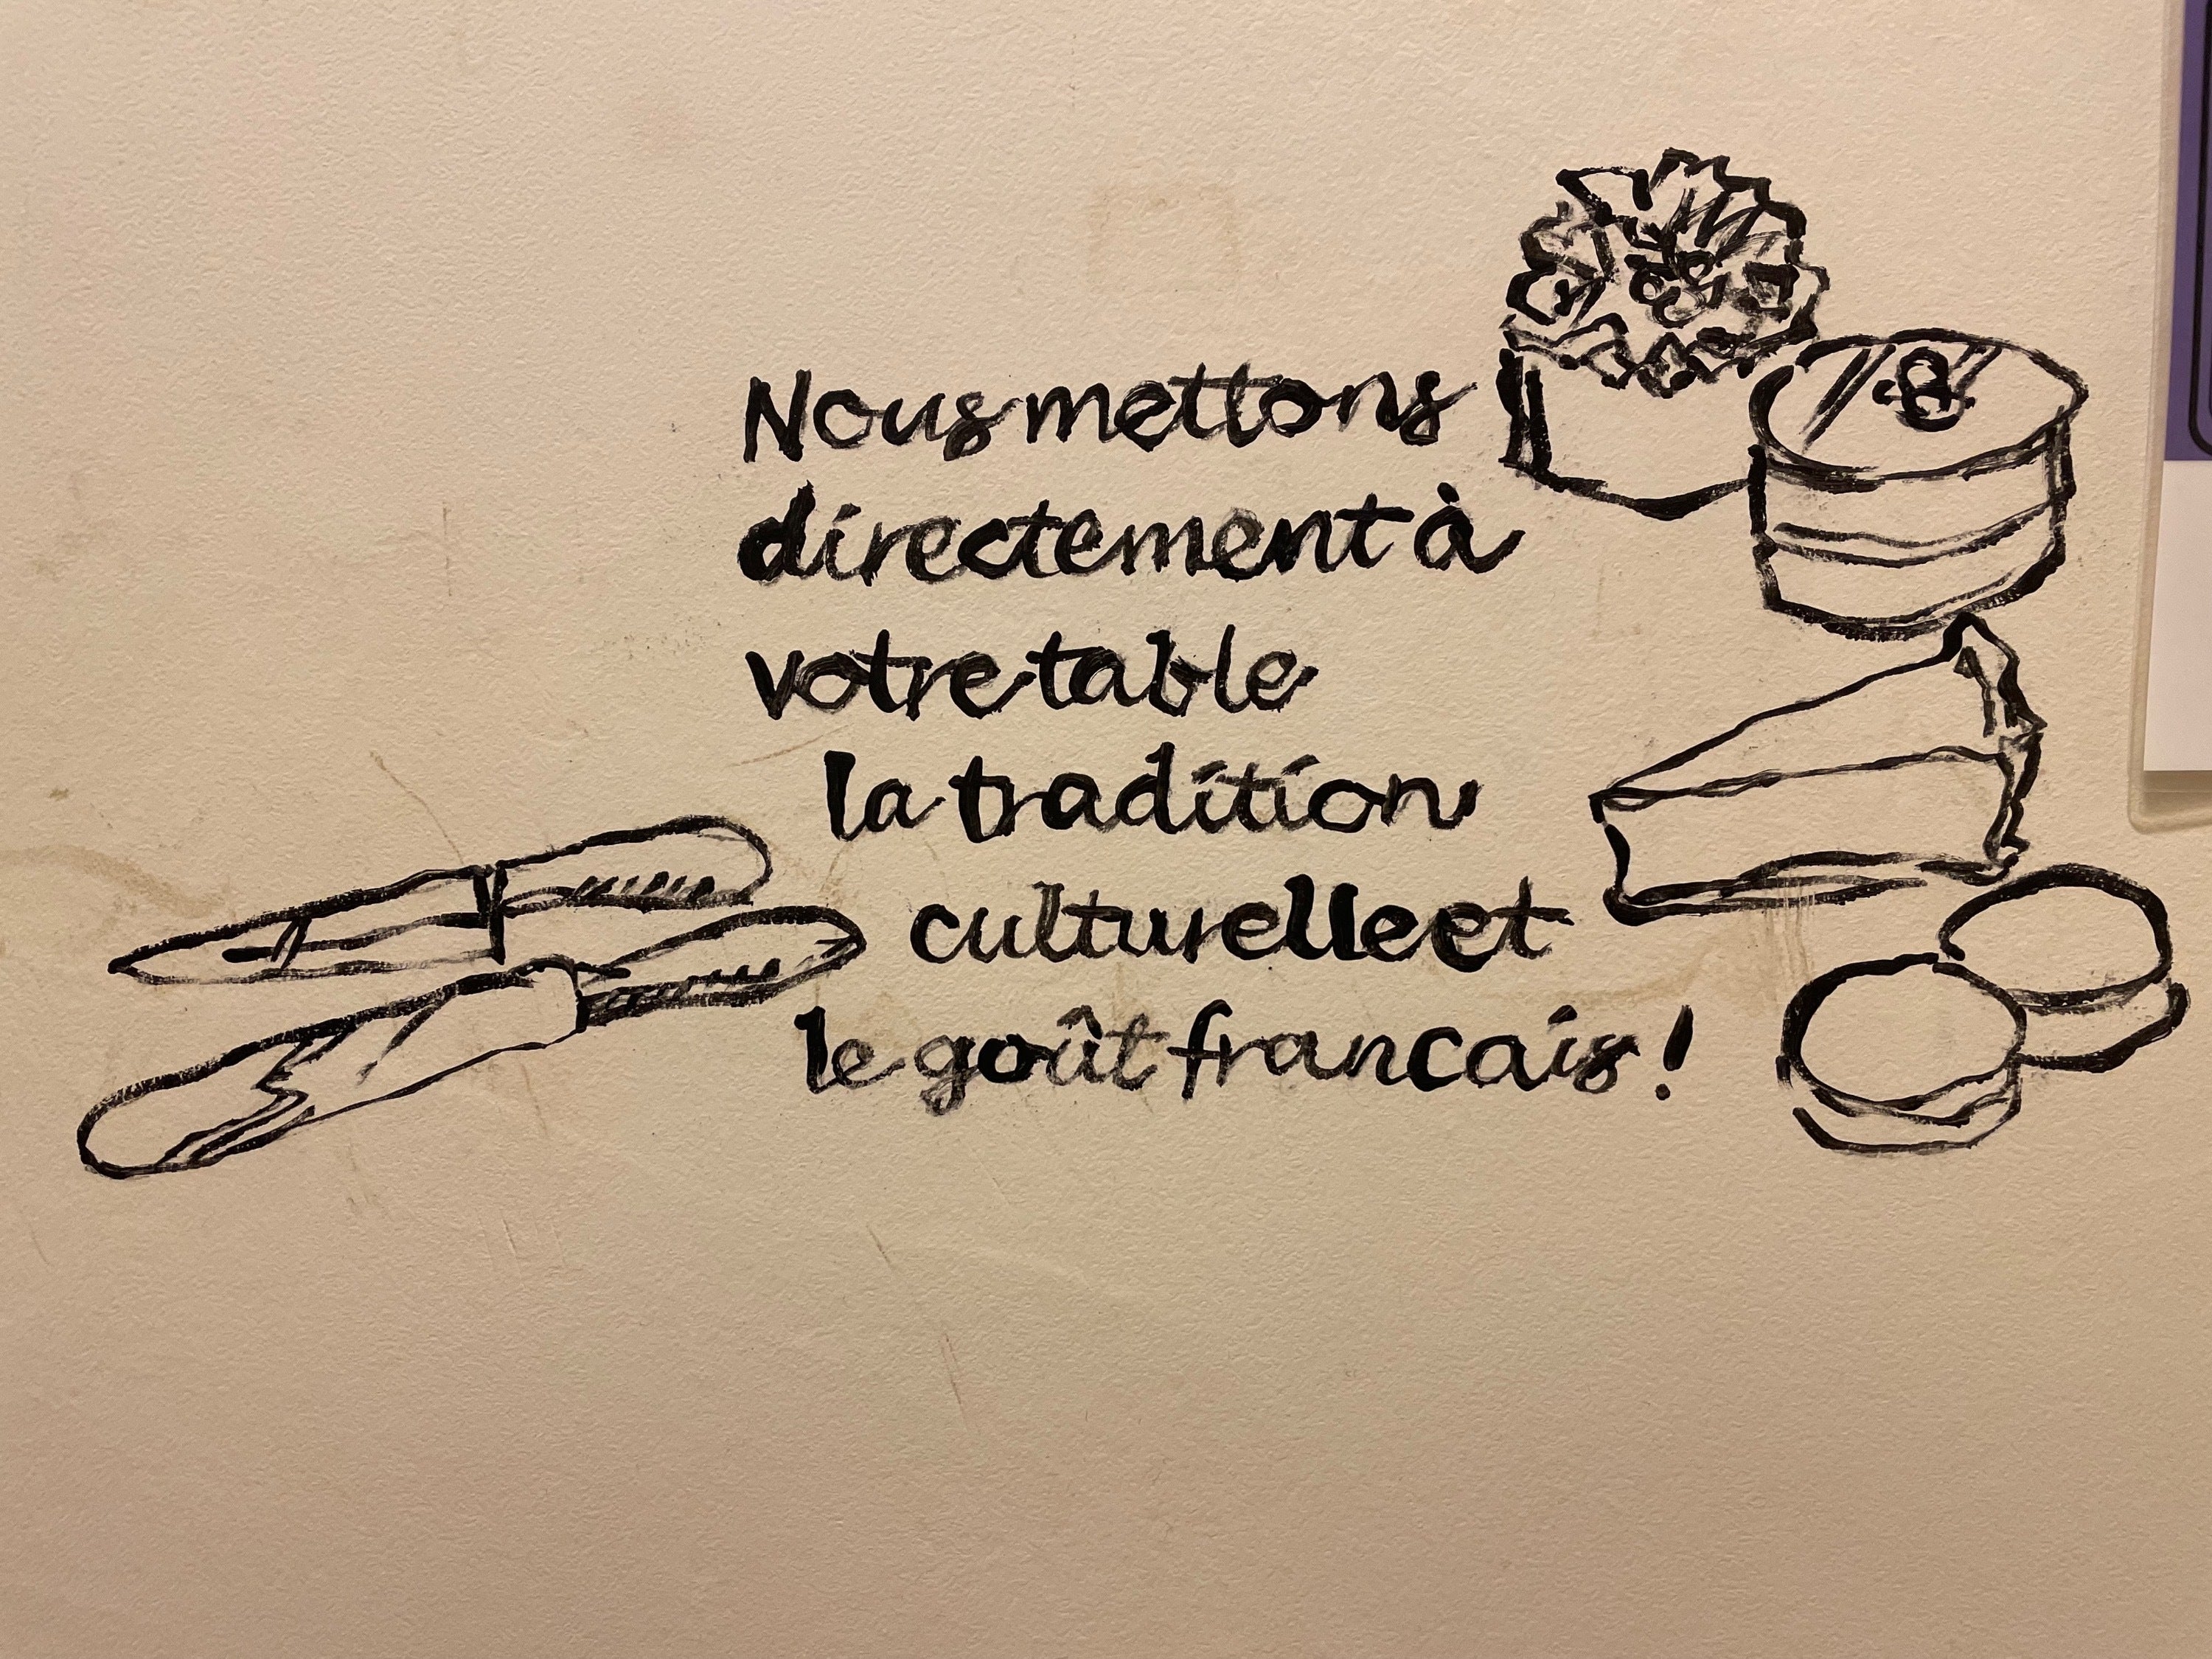 Nous mettons
directement à
votre table
la tradition
culturelle et
le goût francais !